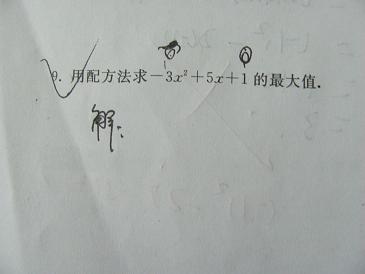 9. 用配方法求-3x²+5x+1的最大值.
解: